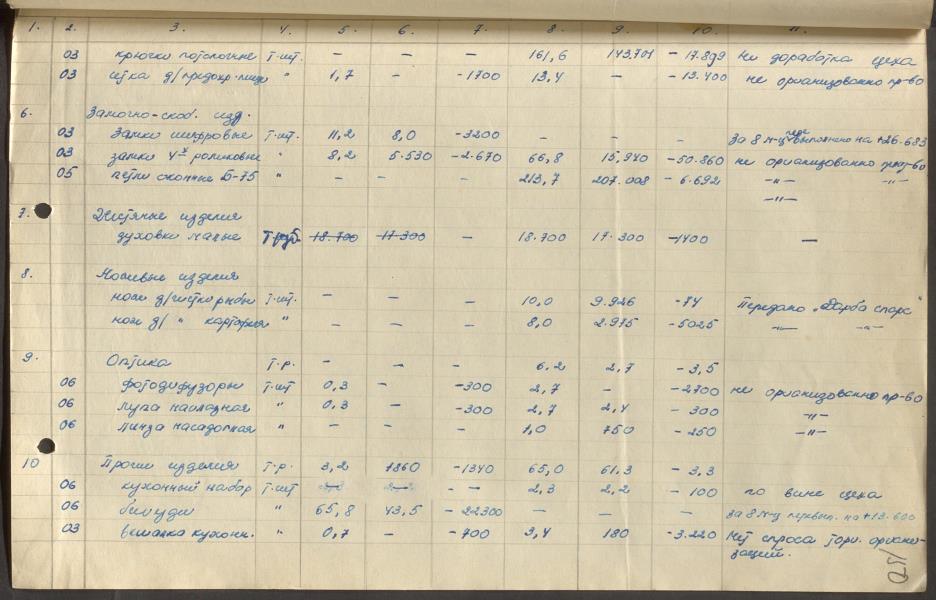 1. 2. 3. 4. 5. 6. 7. 8. 9. 10. 11.
03 крючки потолочные т.шт. – – – 161,6 143.701 – 17.899 Не доработка цеха
03 сетка д/предохр. " 1,7 – –1700 13,4 – – 13.400 не организованно пр-во
6. Замочно-скоб. изд.
03 Замки шифровые т.шт. 11,2 8,0 –3200 – – – За 8 м-ц перевыполнено на +26.683
03 замки 4х роликовые " 8,2 5.530 –2.670 66,8 15,940 –50.860 не организованно пр-во
05 петли оконные Б-75 " – – – 213,7 207.008 – 6.692 –"– –"–
–"–
7. Жестяные изделия
духовки малые Т.руб. 18.700 17.300 – 18.700 17.300 –1400 –
8. Ножевые изделия
нож д/чистки рыбы т.шт. – – – 10,0 9.926 –74 Передано „Дарба спарс"
нож д/ " картофеля " – – – 8,0 2.975 –5025 –"– –"–
9. Оптика т.р. – – – 6.2 2,7 – 3,5
06 фотодифузоры т.шт 0,3 – –300 2,7 – –2700 не организованно пр-во
06 лупа накладная " 0,3 – –300 2,7 2,4 – 300 –"–
06 линза насадочная " – – – 1,0 750 – 250 –"–
10 Прочие изделия т.р. 3,2 1860 –1340 65,0 61.3 – 3,3
06 кухонный набор т.шт – – 2,3 2,2 – 100 по вине цеха
06 бигуди " 65,8 43,5 – 22300 – – – за 8 м-ц перевып. на +13.600
03 вешалка кухонн. " 0,7 – –700 3,4 180 –3.220 Нет спроса торг. органи-
заций.